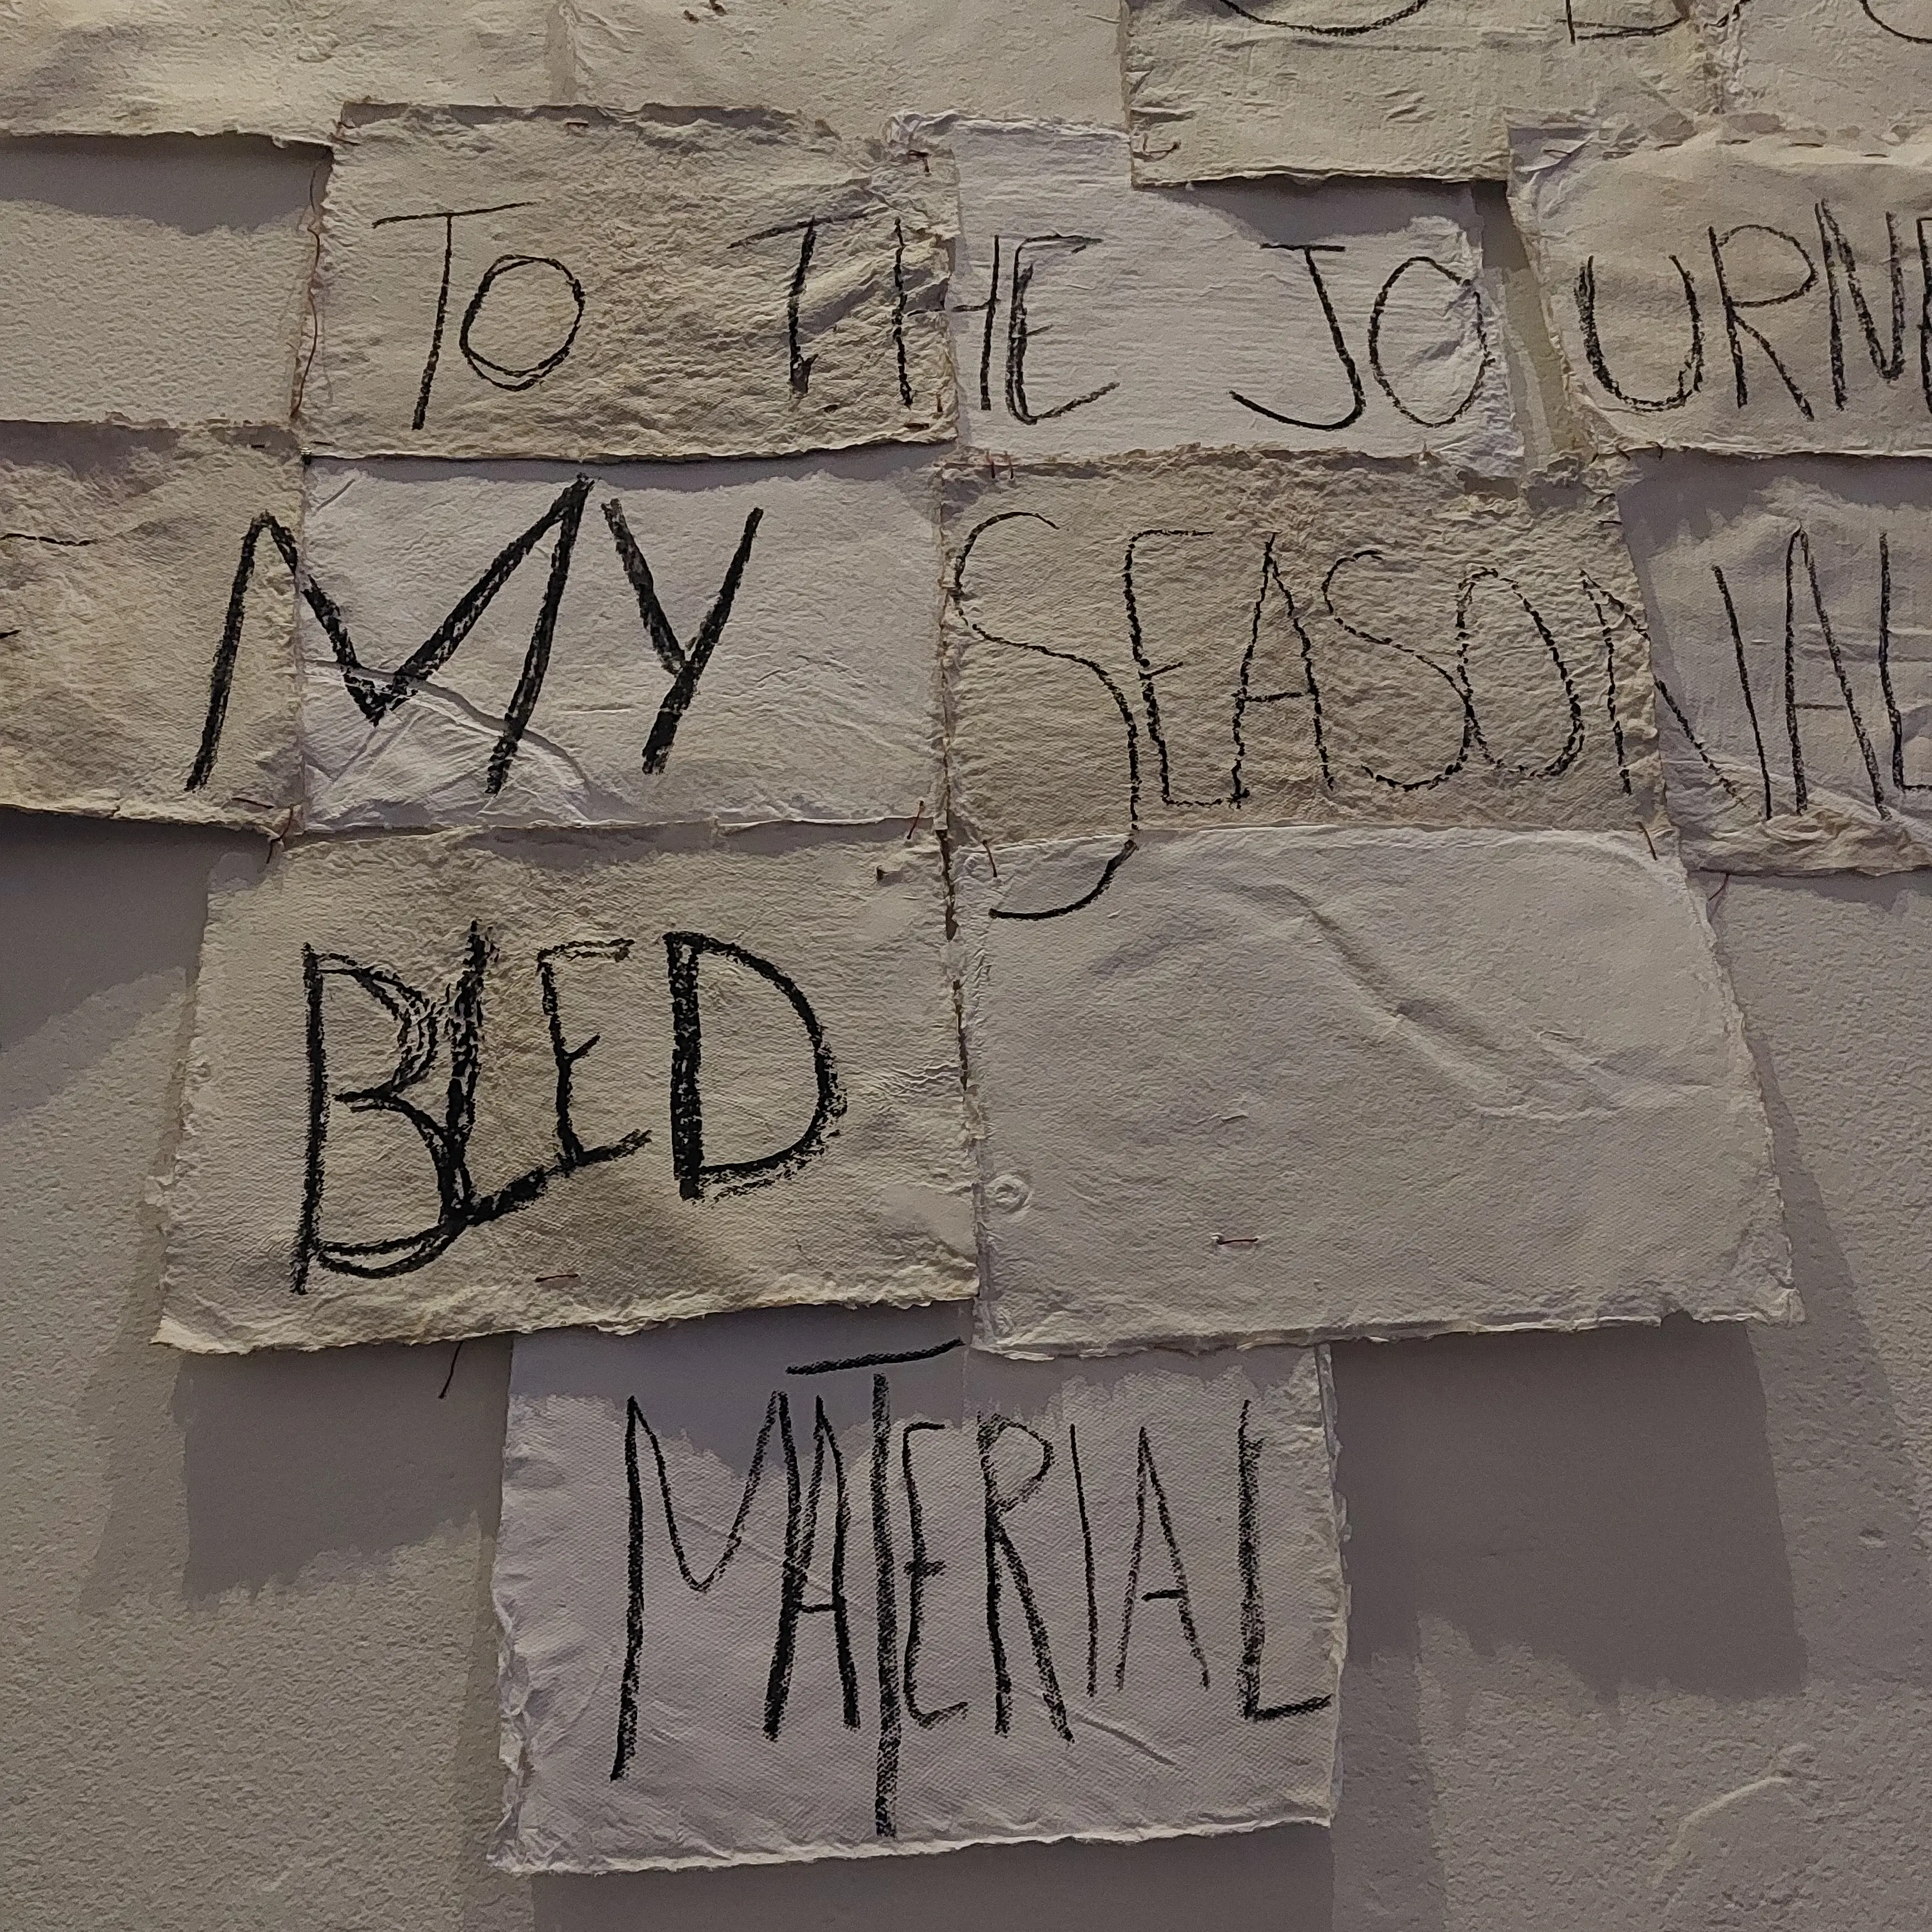 TO THE JOURNE
MY SEASONAL
BLED
MATERIAL